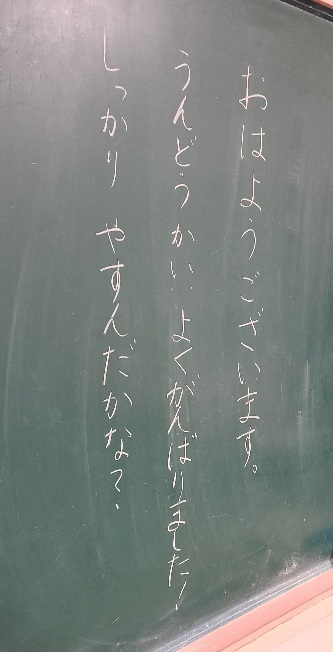 おはようございます。
うんどうかい、よくがんばりました！
しっかり やすんだかな？